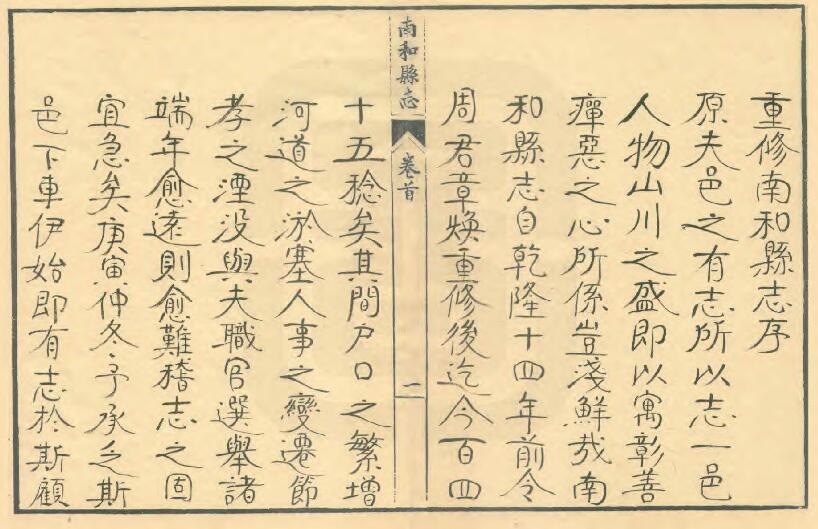 重修南和縣志序
原夫邑之有志所以志一邑
人物山川之盛即以寓彰善
癉惡之心所係豈淺鮮哉南
和縣志自乾隆十四年前令
周君章煥重修後迄今百四
南和縣志
卷首
一
十五稔矣其間户口之繁增
河道之淤塞人事之變遷節
孝之湮没與夫職官選舉諸
端年愈遠則愈難稽志之固
宜急矣庚寅仲冬予承乏斯
邑下車伊始即有志於斯顧